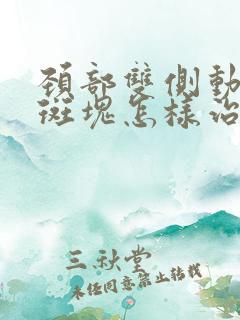 頚部雙側動
斑塊怎樣治
三秋堂
未经同意禁止转载